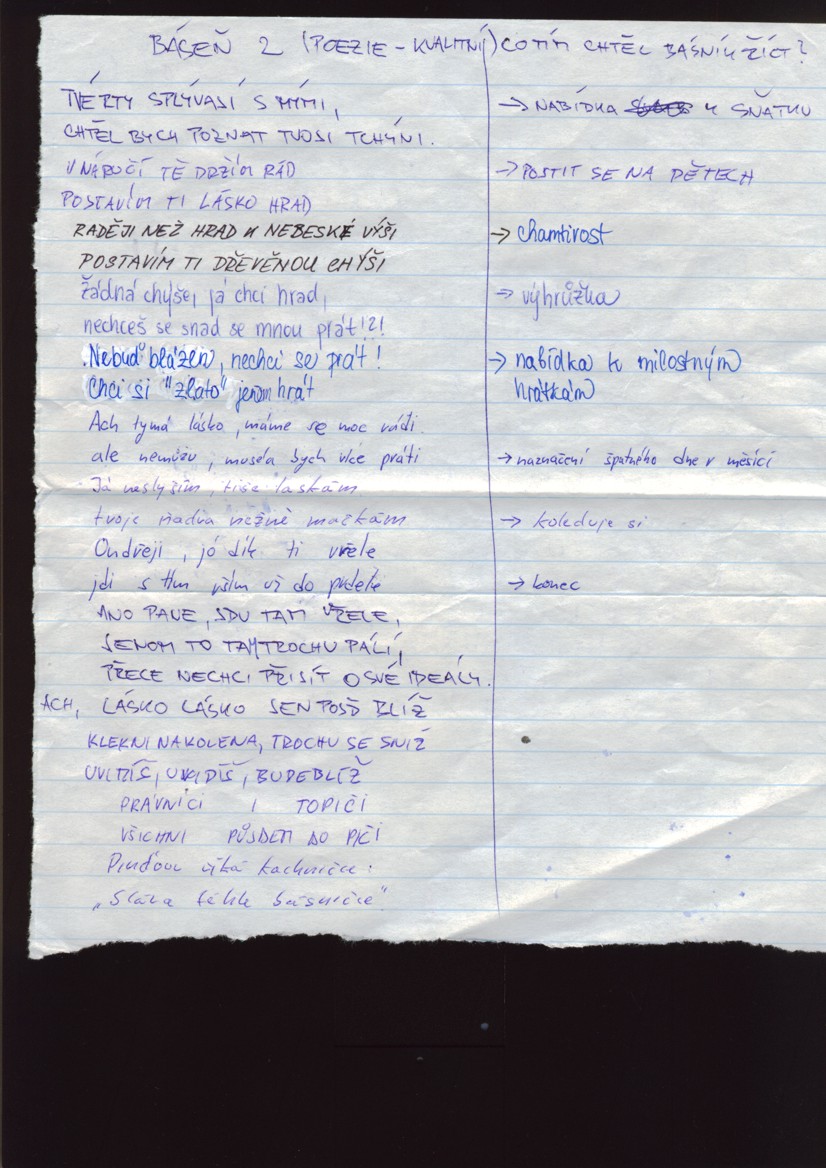 BÁSEŇ 2 (POEZIE - KVALITNÍ) CO TÍM CHTĚL BÁSNÍK ŘÍCT?
TVÉ RTY SPLÝVAJÍ S MÝMI,
→ NABÍDKA K SŇATKU
CHTĚL BYCH POZNAT TVOJI TCHÝNI.
V NÁRUČÍ TĚ DRŽÍM RÁD
→ POSTIT SE NA DĚTECH
POSTAVÍM TI LÁSKO HRAD
RADĚJI NEŽ HRAD K NEBESKÉ VÝŠI
→ chamtivost
POSTAVÍM TI DŘEVĚNOU CHÝŠI
žádná chýše, já chci hrad,
→ výhrůžka
nechceš se snad se mnou prát!?!
Nebuď blázen, nechci se prát!
→ nabídka k milostným
Chci si "zlato" jenom hrát
hrátkám
Ach ty má lásko, máme se moc rádi
ale nemůžu, musela bych více práti
→ naznačení špatného dne v měsíci
Já neslyším, tiše laskám
tvoje ňadra něžně mačkám
→ koleduje si
Ondřeji, jó dík ti vřele
jdi s tím vším už do prdele
→ konec
ANO PANE, JDU TAM VŘELE,
JENOM TO TAM TROCHU PÁLÍ,
PŘECE NECHCI PŘIJÍT O SVÉ IDEÁLY.
ACH, LÁSKO LÁSKO JEN POJĎ BLÍŽ
KLEKNI NA KOLENA, TROCHU SE SNIŽ
UVIDÍŠ, UVIDÍŠ, BUDE BLÍŽ
PRÁVNÍCI I TOPIČI
VŠICHNI PŮJDEM DO PIČI
říká kachničce:
„Sláva téhle básničce"